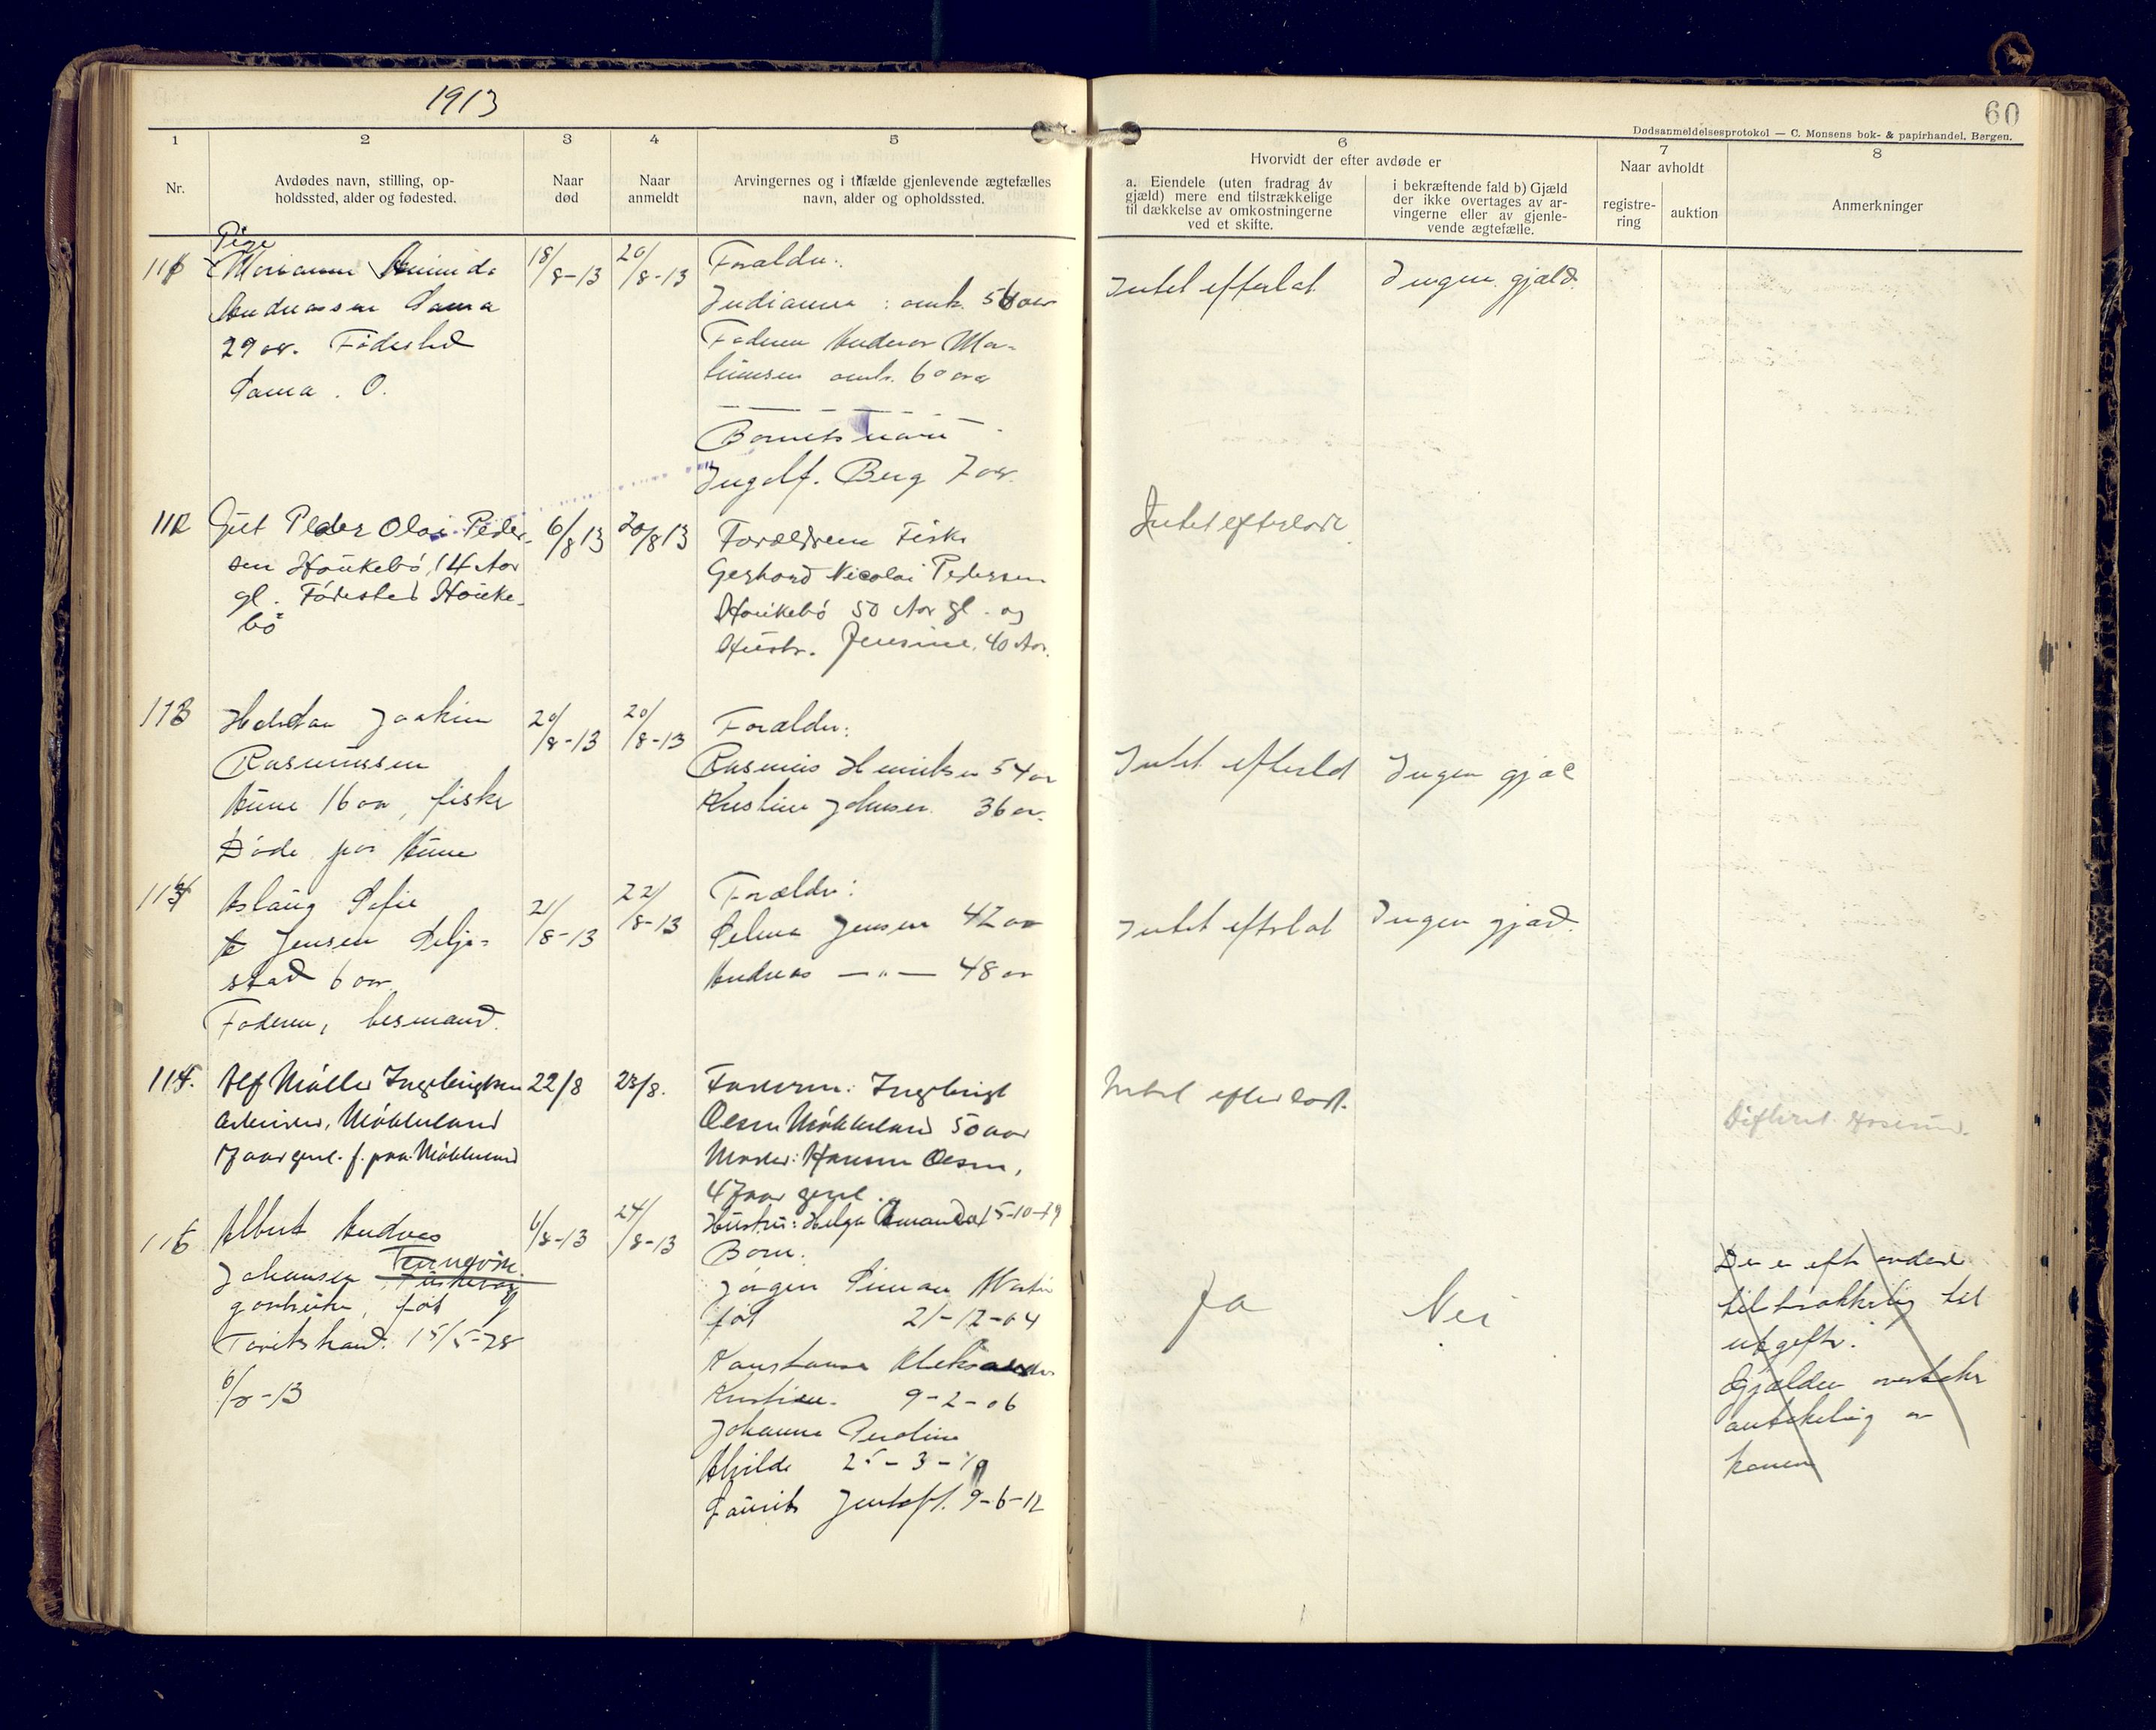 1913
60
Dødsanmeldelsesprotokol — C. Monsens bok- & papirhandel, Bergen.
1 2 3 4 5 6 7 8
Nr.
Avdødes navn, stilling, op-
holdssted, alder og fødested.
Naar
død
Naar
anmeldt
Arvingernes og i tilfælde gjenlevende ægtefælles
navn, alder og opholdssted.
Hvorvidt der efter avdøde er
a. Eiendele (uten fradrag av
gjæld) mere end tilstrækkelige
til dækkelse av omkostningerne
ved et skifte.
i bekræftende fald b) Gjæld
der ikke overtages av ar-
vingerne eller av gjenle-
vende ægtefælle.
Naar avholdt
registre-
ring
auktion
Anmerkninger
Pige
Andreassen Sama
29 aar. Fødested
Sama. O.
18/8-13
20/8-13
Forældre:
Indianna : omk. 56 aar
Faderen Andreas Ma-
omk. 60 aar
Barnets navn
Ingolf. Berg 7 aar.
Intet efterlat
Ingen gjæld.
112
Gut Peder Olai Peder-
sen Haukebø, 14 Aar
gl. Fødested Hauke-
bø
6/8 13
20/8 13
Forældrene Fisker
Gerhard Nicolai Pedersen
Haukebø 50 Aar gl. og
Hustr. Jensine, 40 Aar.
Intet efterlade
113
Halvdan Joakim
Rasmussen
16 aar, fisker
Døde paa
20/8-13
20/8-13
Forældre:
Rasmus Henriksen 54 aar
Kristine Johnsen 36 aar.
Intet efterlat
Ingen gjæld
114
Aslaug Sofie
Jensen Selje-
stad 6 aar.
Faderen, løsmand.
21/8-13
22/8-13
Forældre:
Selma Jensen 42 aar
Andreas — " — 48 aar
Intet efterlat
Ingen gjæld.
115.
Alf Møller Ingebrigtsen
arbeider, Møkkeland
17 aar gml. f. paa Møkkeland
22/8
23/8.
Faderen: Ingebrigt
Olsen Møkkeland 50 aar
Moder: Hansen Olsen,
47 aar gml.
Intet efterladt.
Difterit.
116
Albert Andreas
Johansen
født
15/5-78
6/8-13
6/8-13
24/8-13
Hustru: Helga Amanda 15-10-79
Børn:
Jørgen Simon Martin
født 21-12-04
Konstanse
Kristian. 9-2-06
Johanna Peroline
Alvilde 25-3-10
Laurits Jentoft. 9-6-12
Ja
Nei
Der er efter avdøde
tilstrækkelig til
utgifter.
Gjælden overtakes
antakelig av
konen